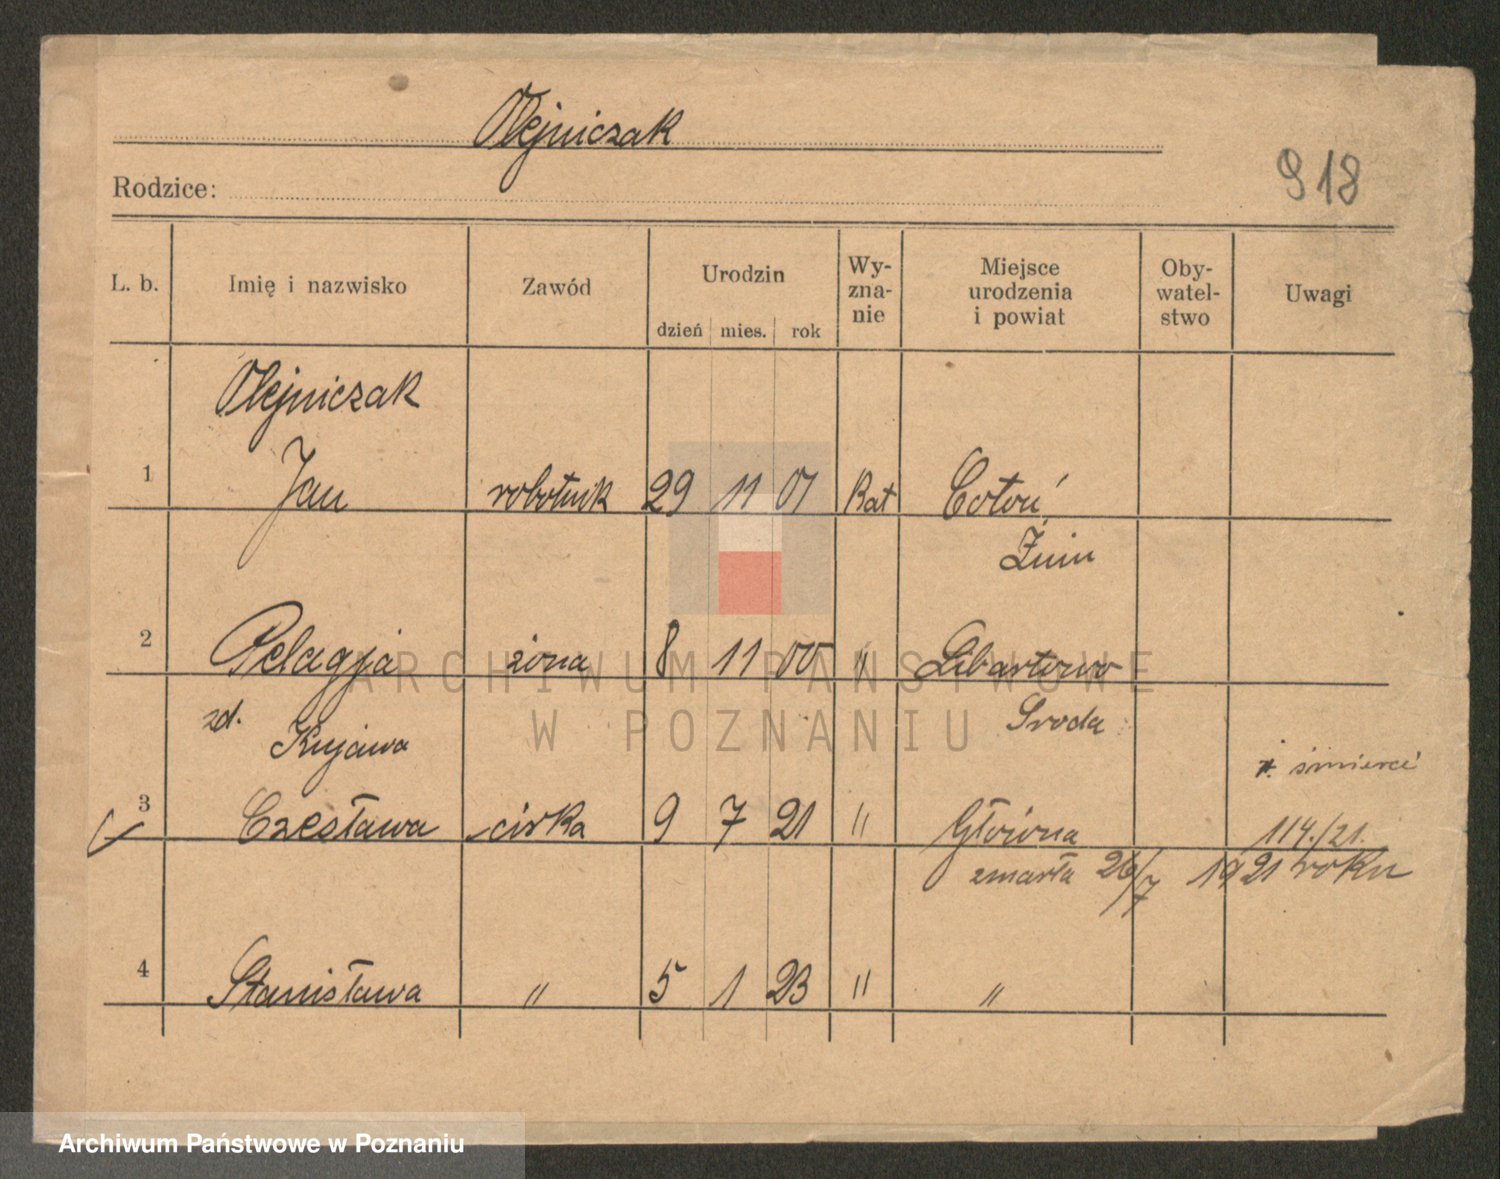 Olejniczak
Rodzice:
918
L. b. Imię i nazwisko Zawód Urodzin dzień mies. rok Wy-zna-nie Miejsce urodzenia i powiat Oby-watel-stwo Uwagi
Olejniczak
1 Jan robotnik 29 11 01 Kat Cotoń
Żnin
2 Pelagja żona 8 11 00 " Libartowo
zd. Kujawa Środa
śmierci
3 Czesława córka 9 7 21 " Główna 114./21.
zmarła 26/7 1921 roku
4 Stanisława " 5 1 23 " "
ARCHIWUM PAŃSTWOWE
W POZNANIU
Archiwum Państwowe w Poznaniu